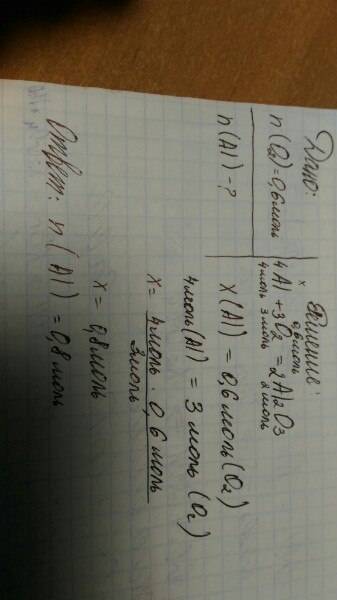 Дано:
n(O2)=0,6моль
n(Al)-?
Решение:
x 0,6моль
4Al+3O2=2Al2O3
4моль 3моль 2моль
x(Al)=0,6моль(O2)
4моль(Al)=3моль(O2)
x=4моль·0,6моль
3моль
x=0,8моль
Ответ: n(Al)=0,8моль